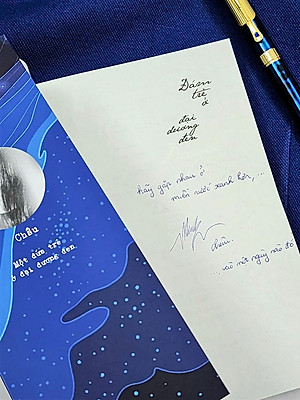 Đám
trẻ
ở
đại
dương
đen
hãy gặp nhau ở
miền nước xanh hơn, ...
Châu.
... vào một ngày nào đó
Châu
Một đứa trẻ
ở đại dương đen